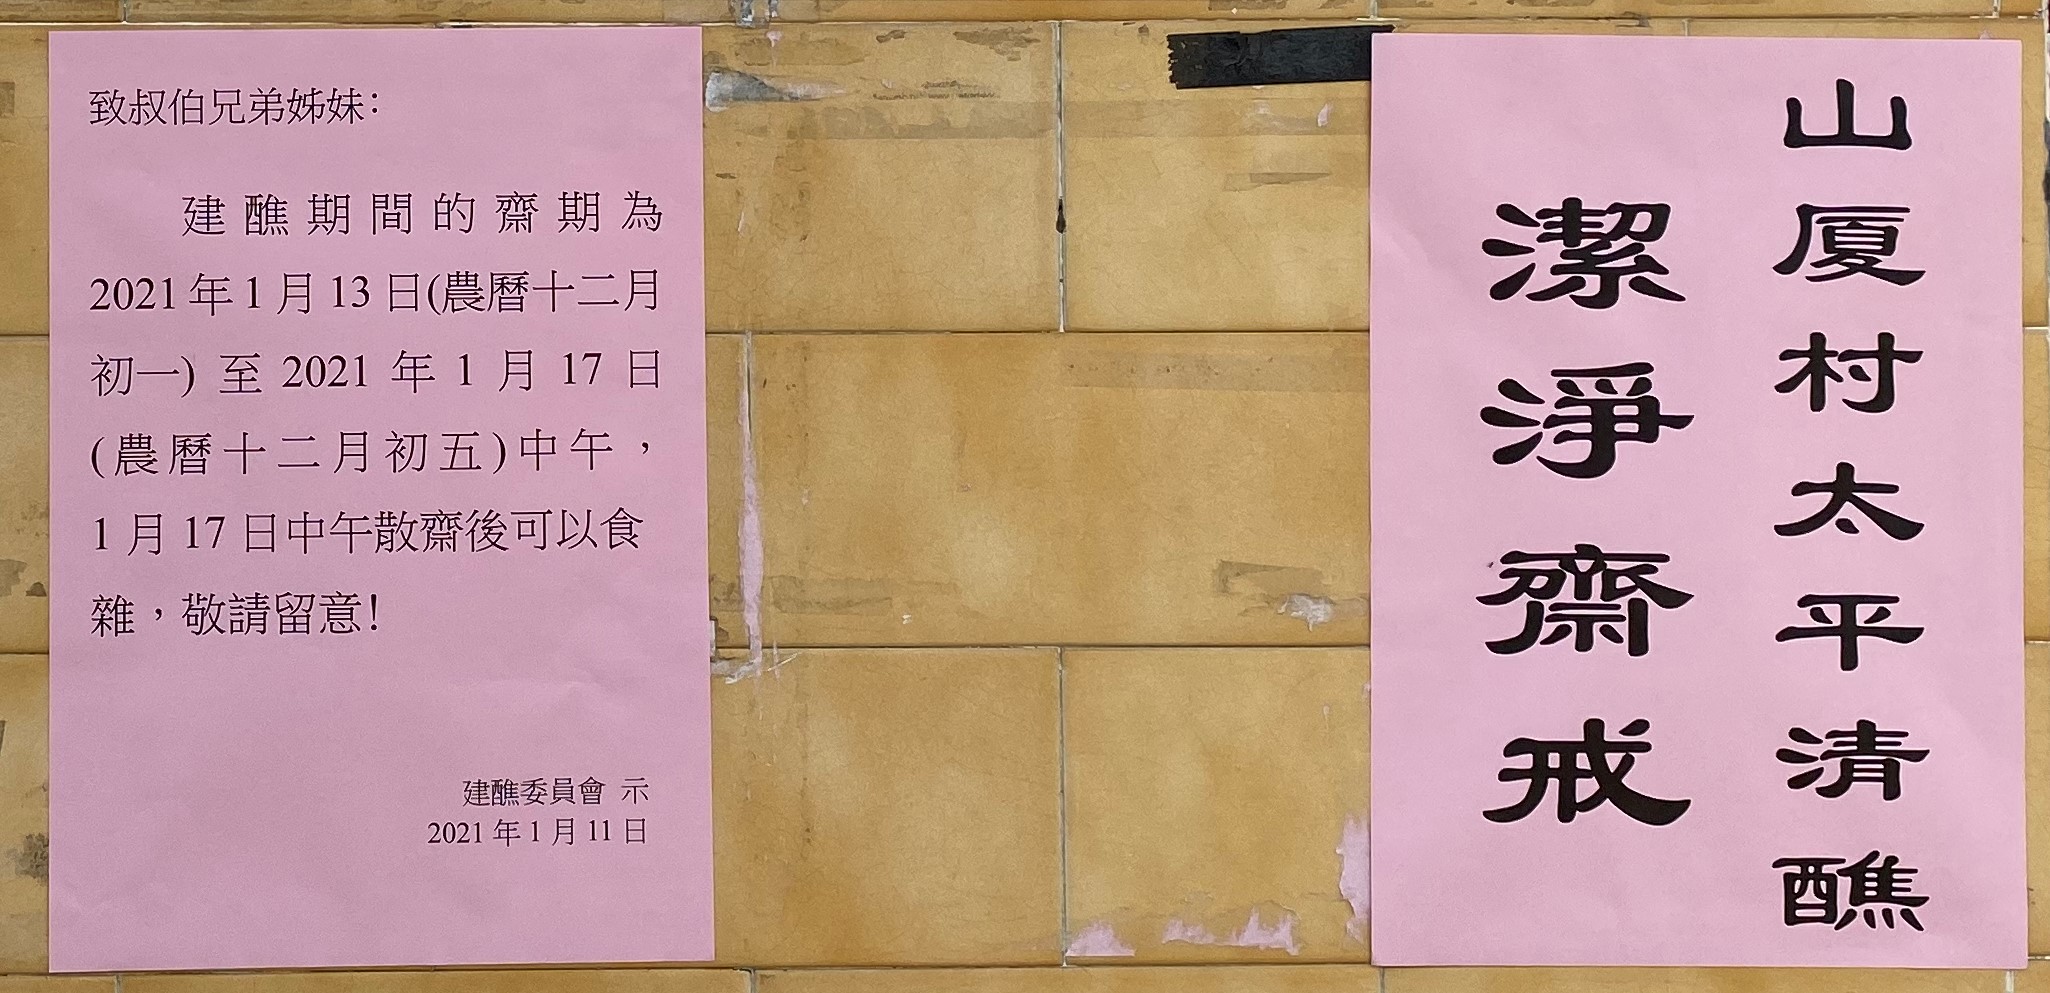 致叔伯兄弟姊妹：
建醮期間的齋期為
2021年1月13日(農曆十二月
初一) 至 2021 年 1 月 17 日
(農曆十二月初五)中午，
1 月 17 日中午散齋後可以食
雜，敬請留意！
建醮委員會 示
2021 年 1 月 11 日
山厦村太平清醮
潔淨齋戒